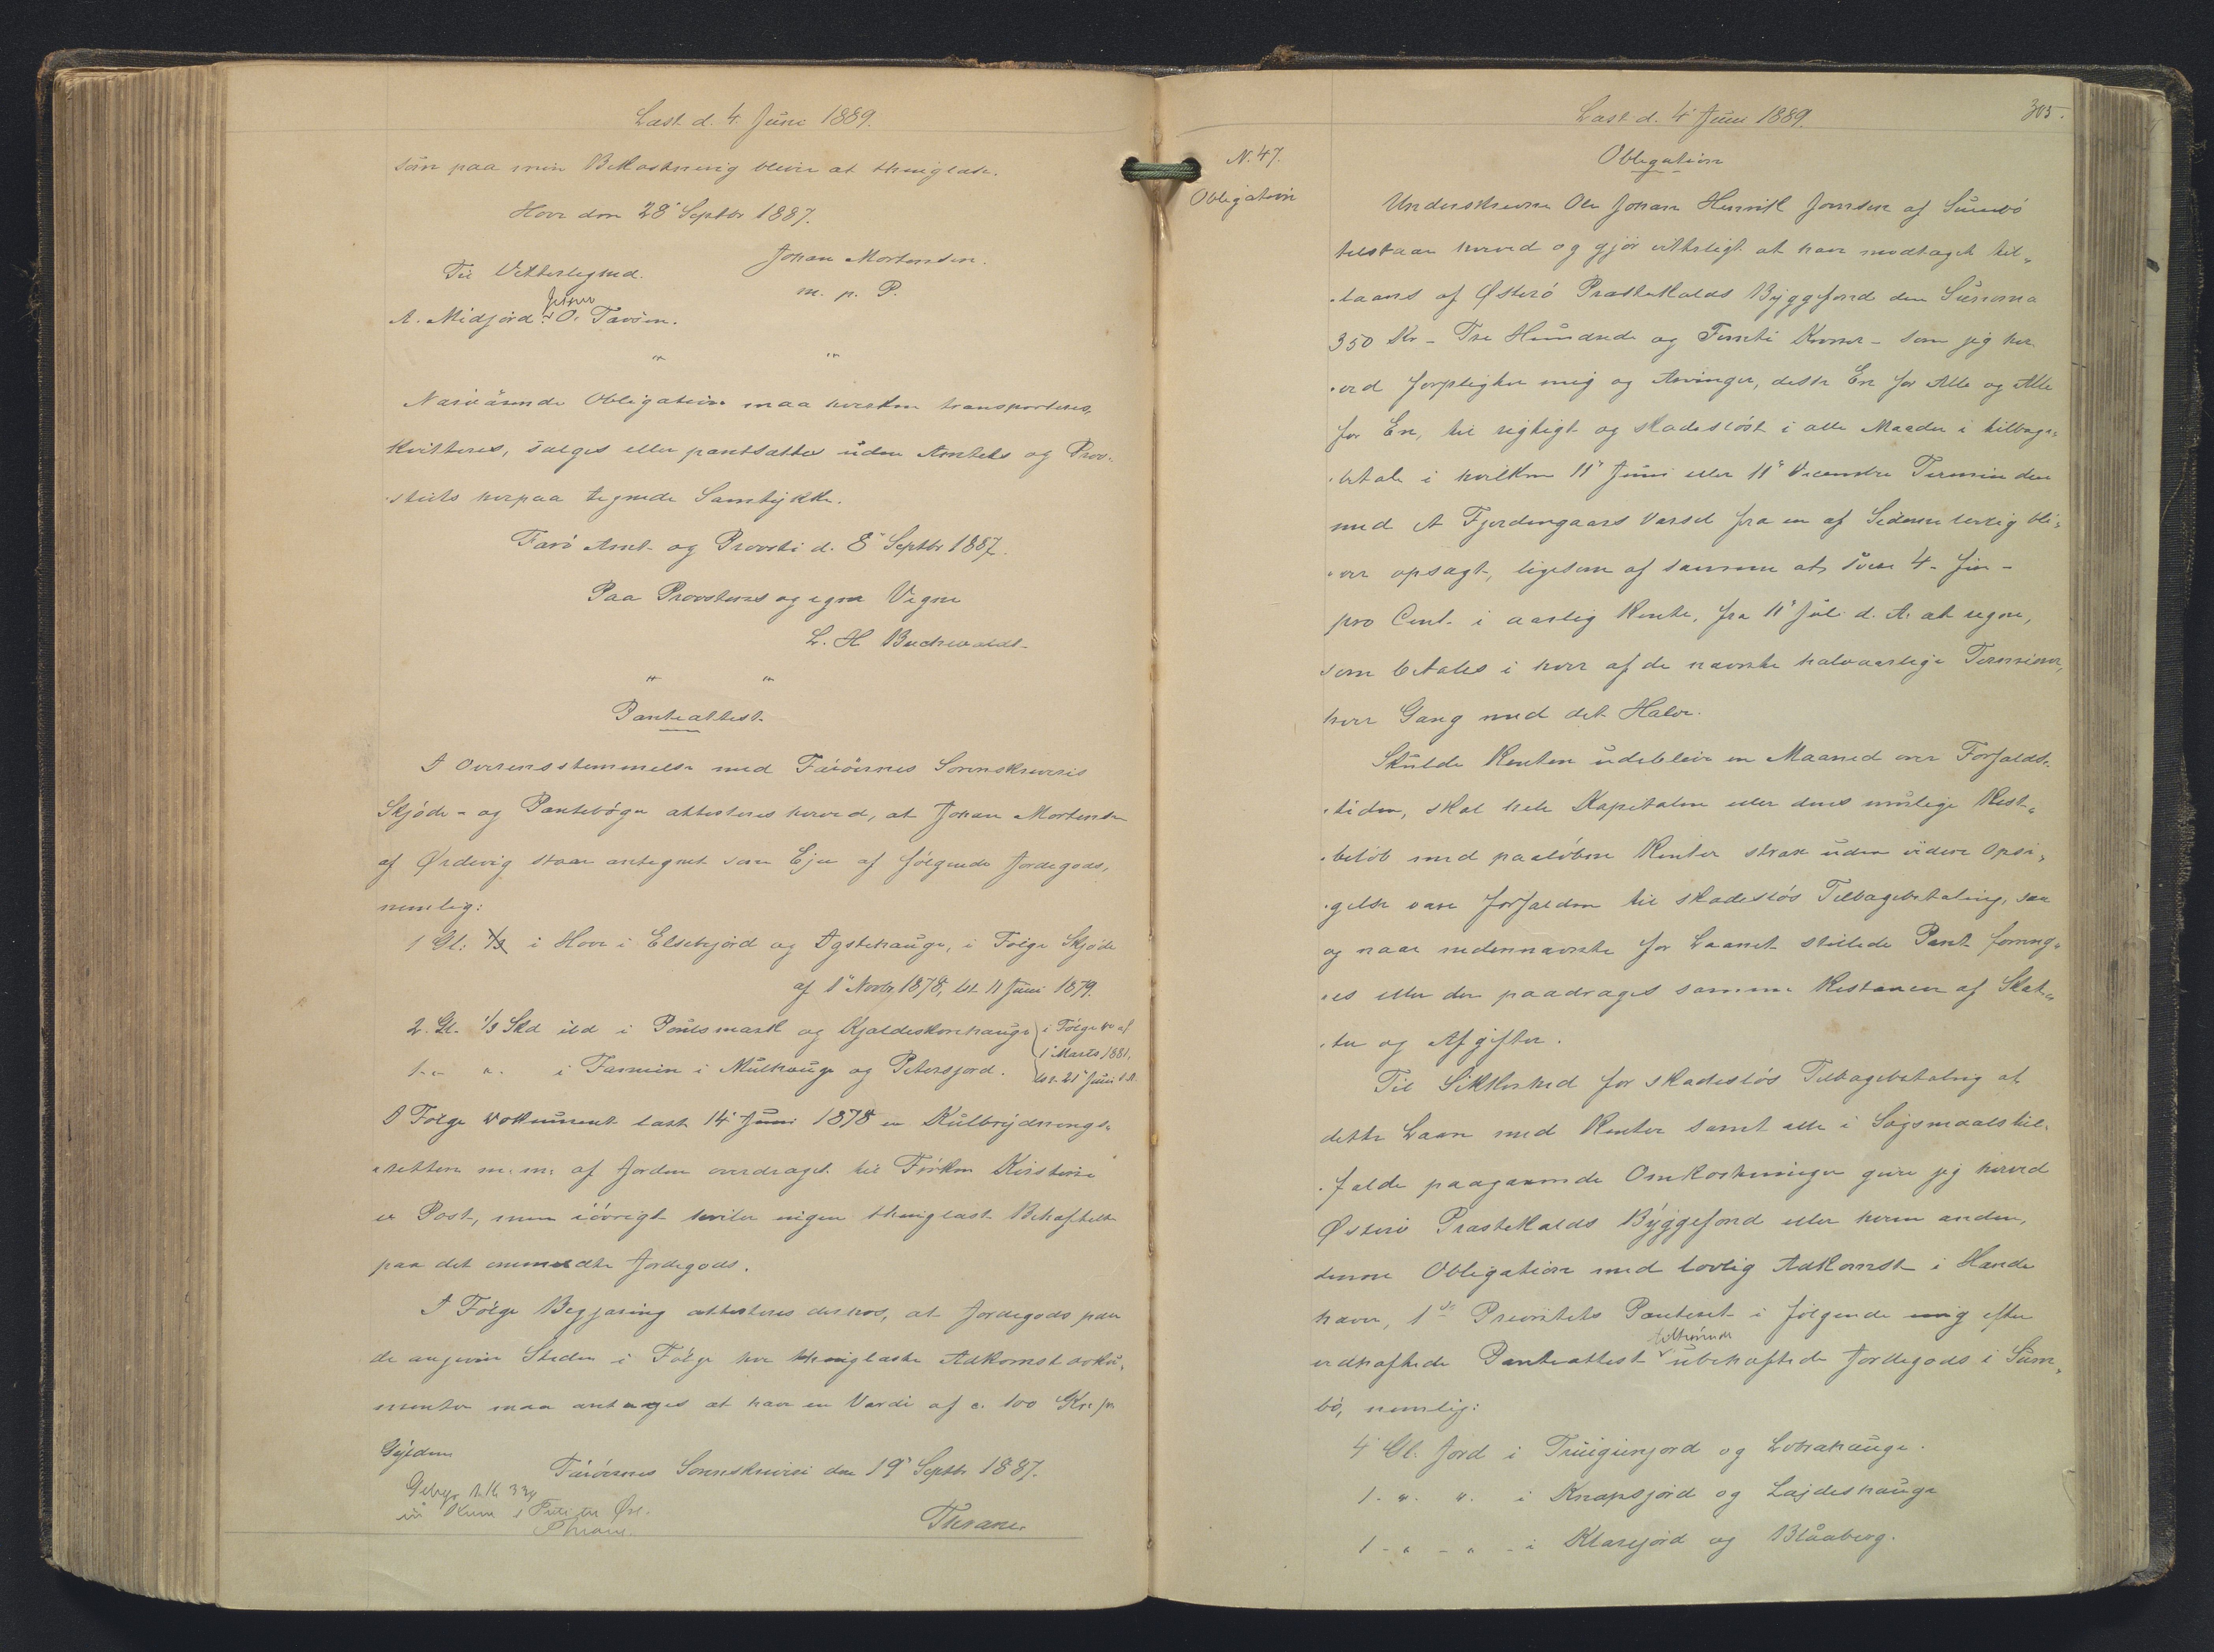 Læst d. 4. Juni 1889.
som paa min Bekostning bliver at thinglæse.
Hove den 28' Septbr 1887.
Johan Mortensen.
Til Vitterlighed.
m. p. P.
Jesper
A. Midjord. O. Tavsen.
" "
Nærværende Obligation maa hverken transporteres,
kvitteres, sælges eller pantsættes uden Amtets og Prov-
stiets herpaa tegnede Samtykke.
Færø Amt- og Provsti d. 8' Septbr 1887.
Paa Provstens og egne Vegne
L. H. Buchwaldt
" "
Panteattest
I Overensstemmelse med Færøernes Sorenskriveris
Skjøde- og Pantebøger attesteres herved, at Johan Mortensen
af Ørdevig staar antegnet som Ejer af følgende Jordegods,
nemlig:
1 Gl: 1/3 i Hove i Elsebjørd og Egstehauge, i Følge Skjøde
af 1' Novbr 1878, lst. 11 Juni 1879.
2. Gl. 1/3 Skd ibd i Poulsmark og Kjaldeskorehauge i Følge do af
1' Marts 1881,
1. " " i Famien i Mulhauge og Petersjord. lst. 21' Juni s. A.
I Følge Dokument læst 14' Juni 1878 er Kulbrydnings-
retten m. m. af Jorden overdraget til Frøken Kirstine
le Post, men iøvrigt hviler ingen thinglæst Behæftelse
paa det ommeldte Jordegods.
I Følge Begjæring attesteres derhos, at Jordegods paa
de angivne Steder i Følge her thinglæste Adkomstdoku-
menter maa antages at have en Værdi af c. 100 Kr. pr
Gylden
Færøernes Sorenskriveri den 19' Septbr 1887.
Gebyr 1 K 33
Thrane.
Thrane.
Læst d. 4' Juni 1889.
305.
N. 47.
Obligation
Obligation
Underskrevne Ole Johan Henrik Joensen af Sumbø
tilstaar herved og gjør vitterligt at have modtaget til-
laans af Østerø Præstekalds Byggefond den Summa
350 Kr - Tre Hundrede og Femti Kroner - som jeg her-
ved forpligter mig og Arvinger, dette En for Alle og Alle
for En, til rigtigt og skadesløst i alle Maader i tilbage-
betale i hvilken 11' Juni eller 11' December Termin den
med et Fjerdingaars Varsel fra en af Siderne lovlig bli-
ver opsagt, ligesom af samme at svare 4 - fire -
pro Cent i aarlig Rente, fra 11' Juli d. A. at regne,
som betales i hver af de nævnte halvaarlige Terminer,
hver Gang med det Halve.
Skulde Renten udeblive en Maaned over Forfalds-
tiden, skal hele Kapitalen eller dens mulige Rest-
beløb med paaløbne Renter strax uden videre Opsi-
gelse være forfalden til skadesløs Tilbagebetaling, saa
og naar nedennævnte for Laanet stillede Pant forring-
es eller der paadrages samme Restancer af Skat-
ter og Afgifter.
Til Sikkerhed for skadesløs Tilbagebetaling af
dette Laan med Renter samt alle i Søgsmaalstil-
fælde paagaaende Omkostninger giver jeg herved
Østerø Præstekalds Byggefond eller hvem anden,
denne Obligation med lovlig Adkomst i Hænde
haver, 1ste Prioritets Panteret i følgende mig efter
tilhørende
vedhæftede Panteattest ubehæftede Jordegods i Sum-
bø, nemlig:
4 Gl. Jord i Truigunjord og Lohrahauge.
1. " " i Knapsjord og Lajdeshauge
1 - " - " - i Klarejord og Blåaberg.